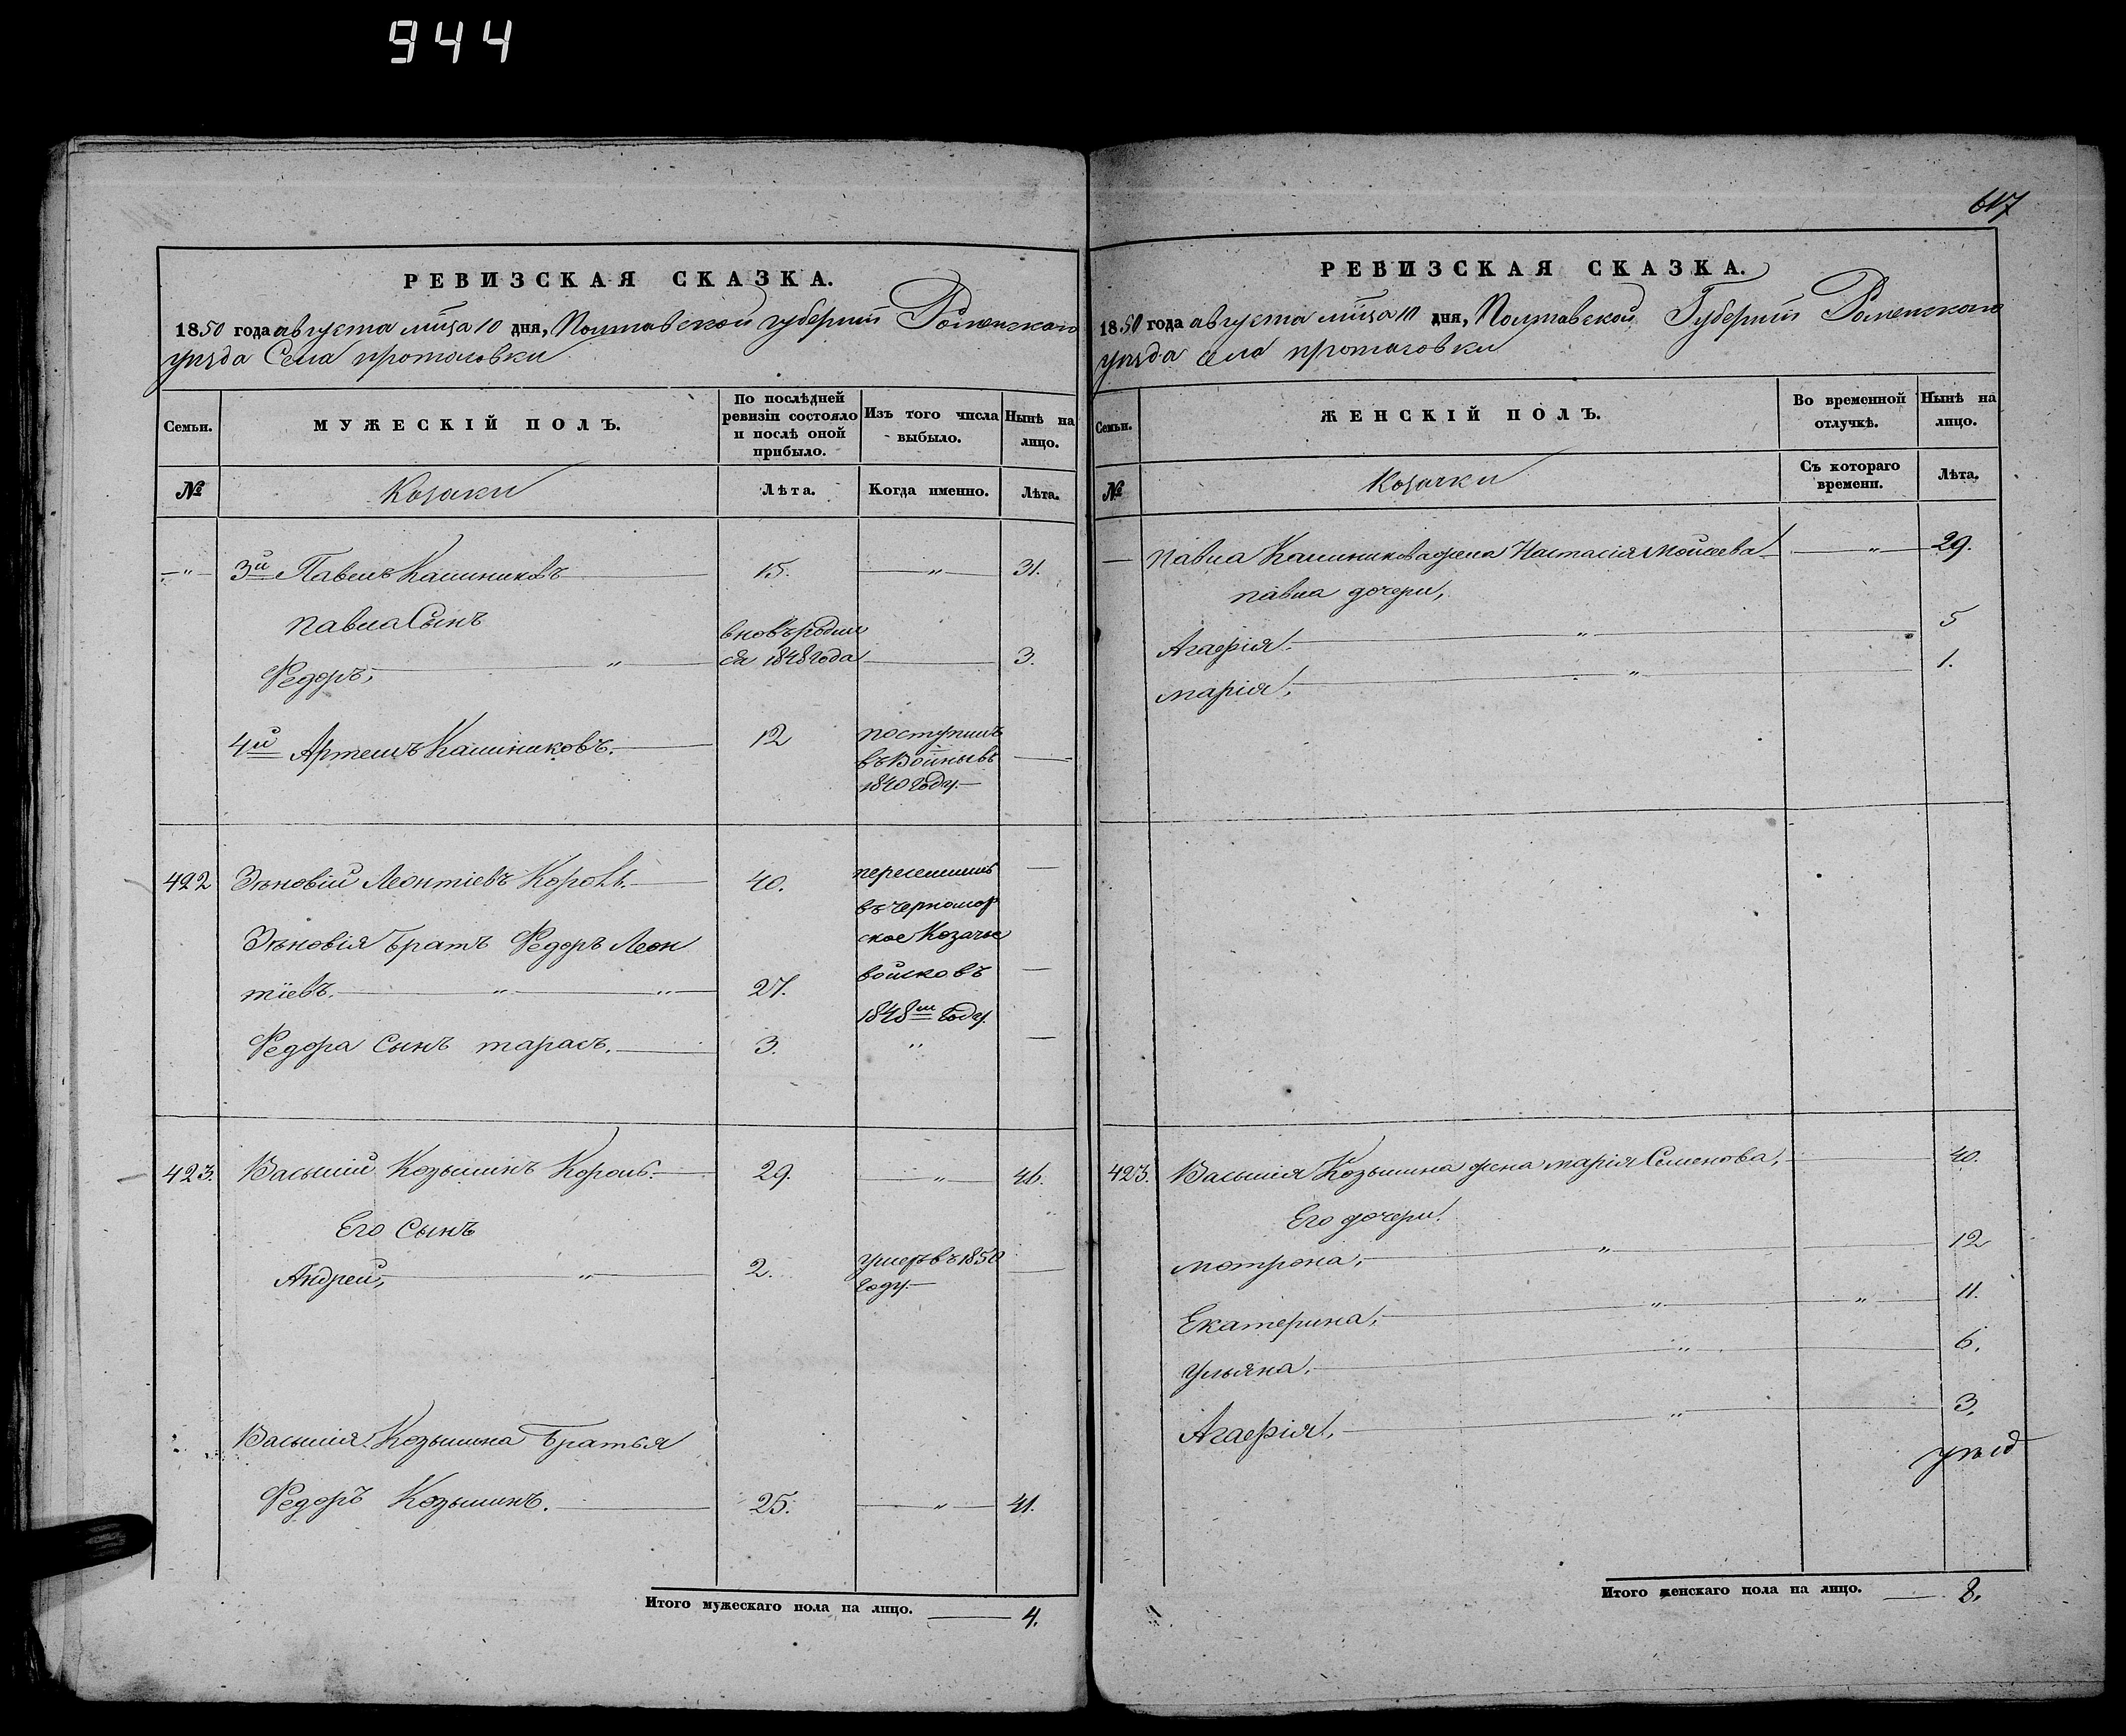 944
617
РЕВИЗСКАЯ СКАЗКА.
1850 года августа мца 10 дня, Полтавской губернии Роменского
уезда Села протасовки
Семьи.
МУЖЕСКІЙ ПОЛЪ.
По послѣдней ревизіи состояло и послѣ оной прибыло.
Изъ того числа выбыло.
Нынѣ на лицо.
№
Козаки
Лѣта.
Когда именно.
Лѣта.
3й Павелъ Калиниковъ 15. 31.
Павла Сынъ
Федоръ, вновь родил
ся 1848 года 3.
4й Артемъ Калиниковъ. 12 поступилъ
въ
1840 году.
422 Зѣновій Леонтіевъ Король. 40. переселились
въ черномор
ское Козачье
Зѣновія братъ Федоръ Леон
тіевъ. 27. войско въ
1848м году.
Федора сынъ тарасъ. 3.
423. Василій Козьминъ Король. 29. 46.
Его сынъ
Андрей, 2. умеръ въ 1850
году.
Василия Козьмина братья
Федоръ Козьминъ. 25. 41.
Итого мужескаго пола на лицо. 4.
РЕВИЗСКАЯ СКАЗКА.
1850 года августа мца 10 дня, Полтавской Губернии Роменского
уезда села протасовки
Семьи.
ЖЕНСКІЙ ПОЛЪ.
Во временной отлучкѣ.
Нынѣ на лицо.
№
Козачки
Съ котораго времени.
Лѣта.
Павла Калиникова жена Настасія Мойсеева 29.
павла дочери,
Агафія. 5
марія, 1.
423. Василия Козьмина жена марія Семенова, 40.
Его дочери.
мотрона, 12
Екатерина, 11.
Ульяна, 6.
Агафія, 3.
Итого женскаго пола на лицо. 8.